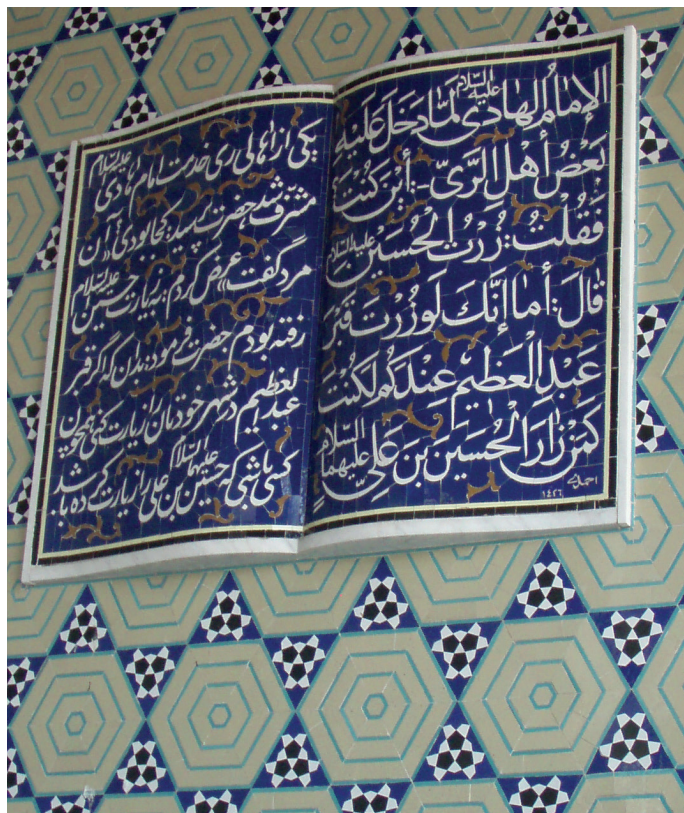 الإمامُ الهادی علیه السّلام لمّا دَخَلَ عَلَیهِ
بَعضُ أهلِ الرَّیّ: أینَ کُنتَ
فَقُلتُ: زُرتُ الحُسَینَ علیه السّلام
قالَ: أما إنَّكَ لَو زُرتَ قَبرَ
عَبدِ العَظیمِ عِندَکُم لَکُنتَ
کَمَن زارَ الحُسَینَ بنَ عَلیٍّ علیهما السّلام
١٤٢٦
یکی از اهالی ری خدمت امام هادی علیه السلام
مشرّف شد، حضرت پرسید: کجا بودی؟ آن
مرد گفت: عرض کردم: زیارت حسین علیه السلام
رفته بودم حضرت فرمود: بدان که اگر قبر
عبدالعظیم در شهر خودتان را زیارت کنی همچون
کسی باشی که حسین بن علی علیهما السلام را زیارت کرده باشد